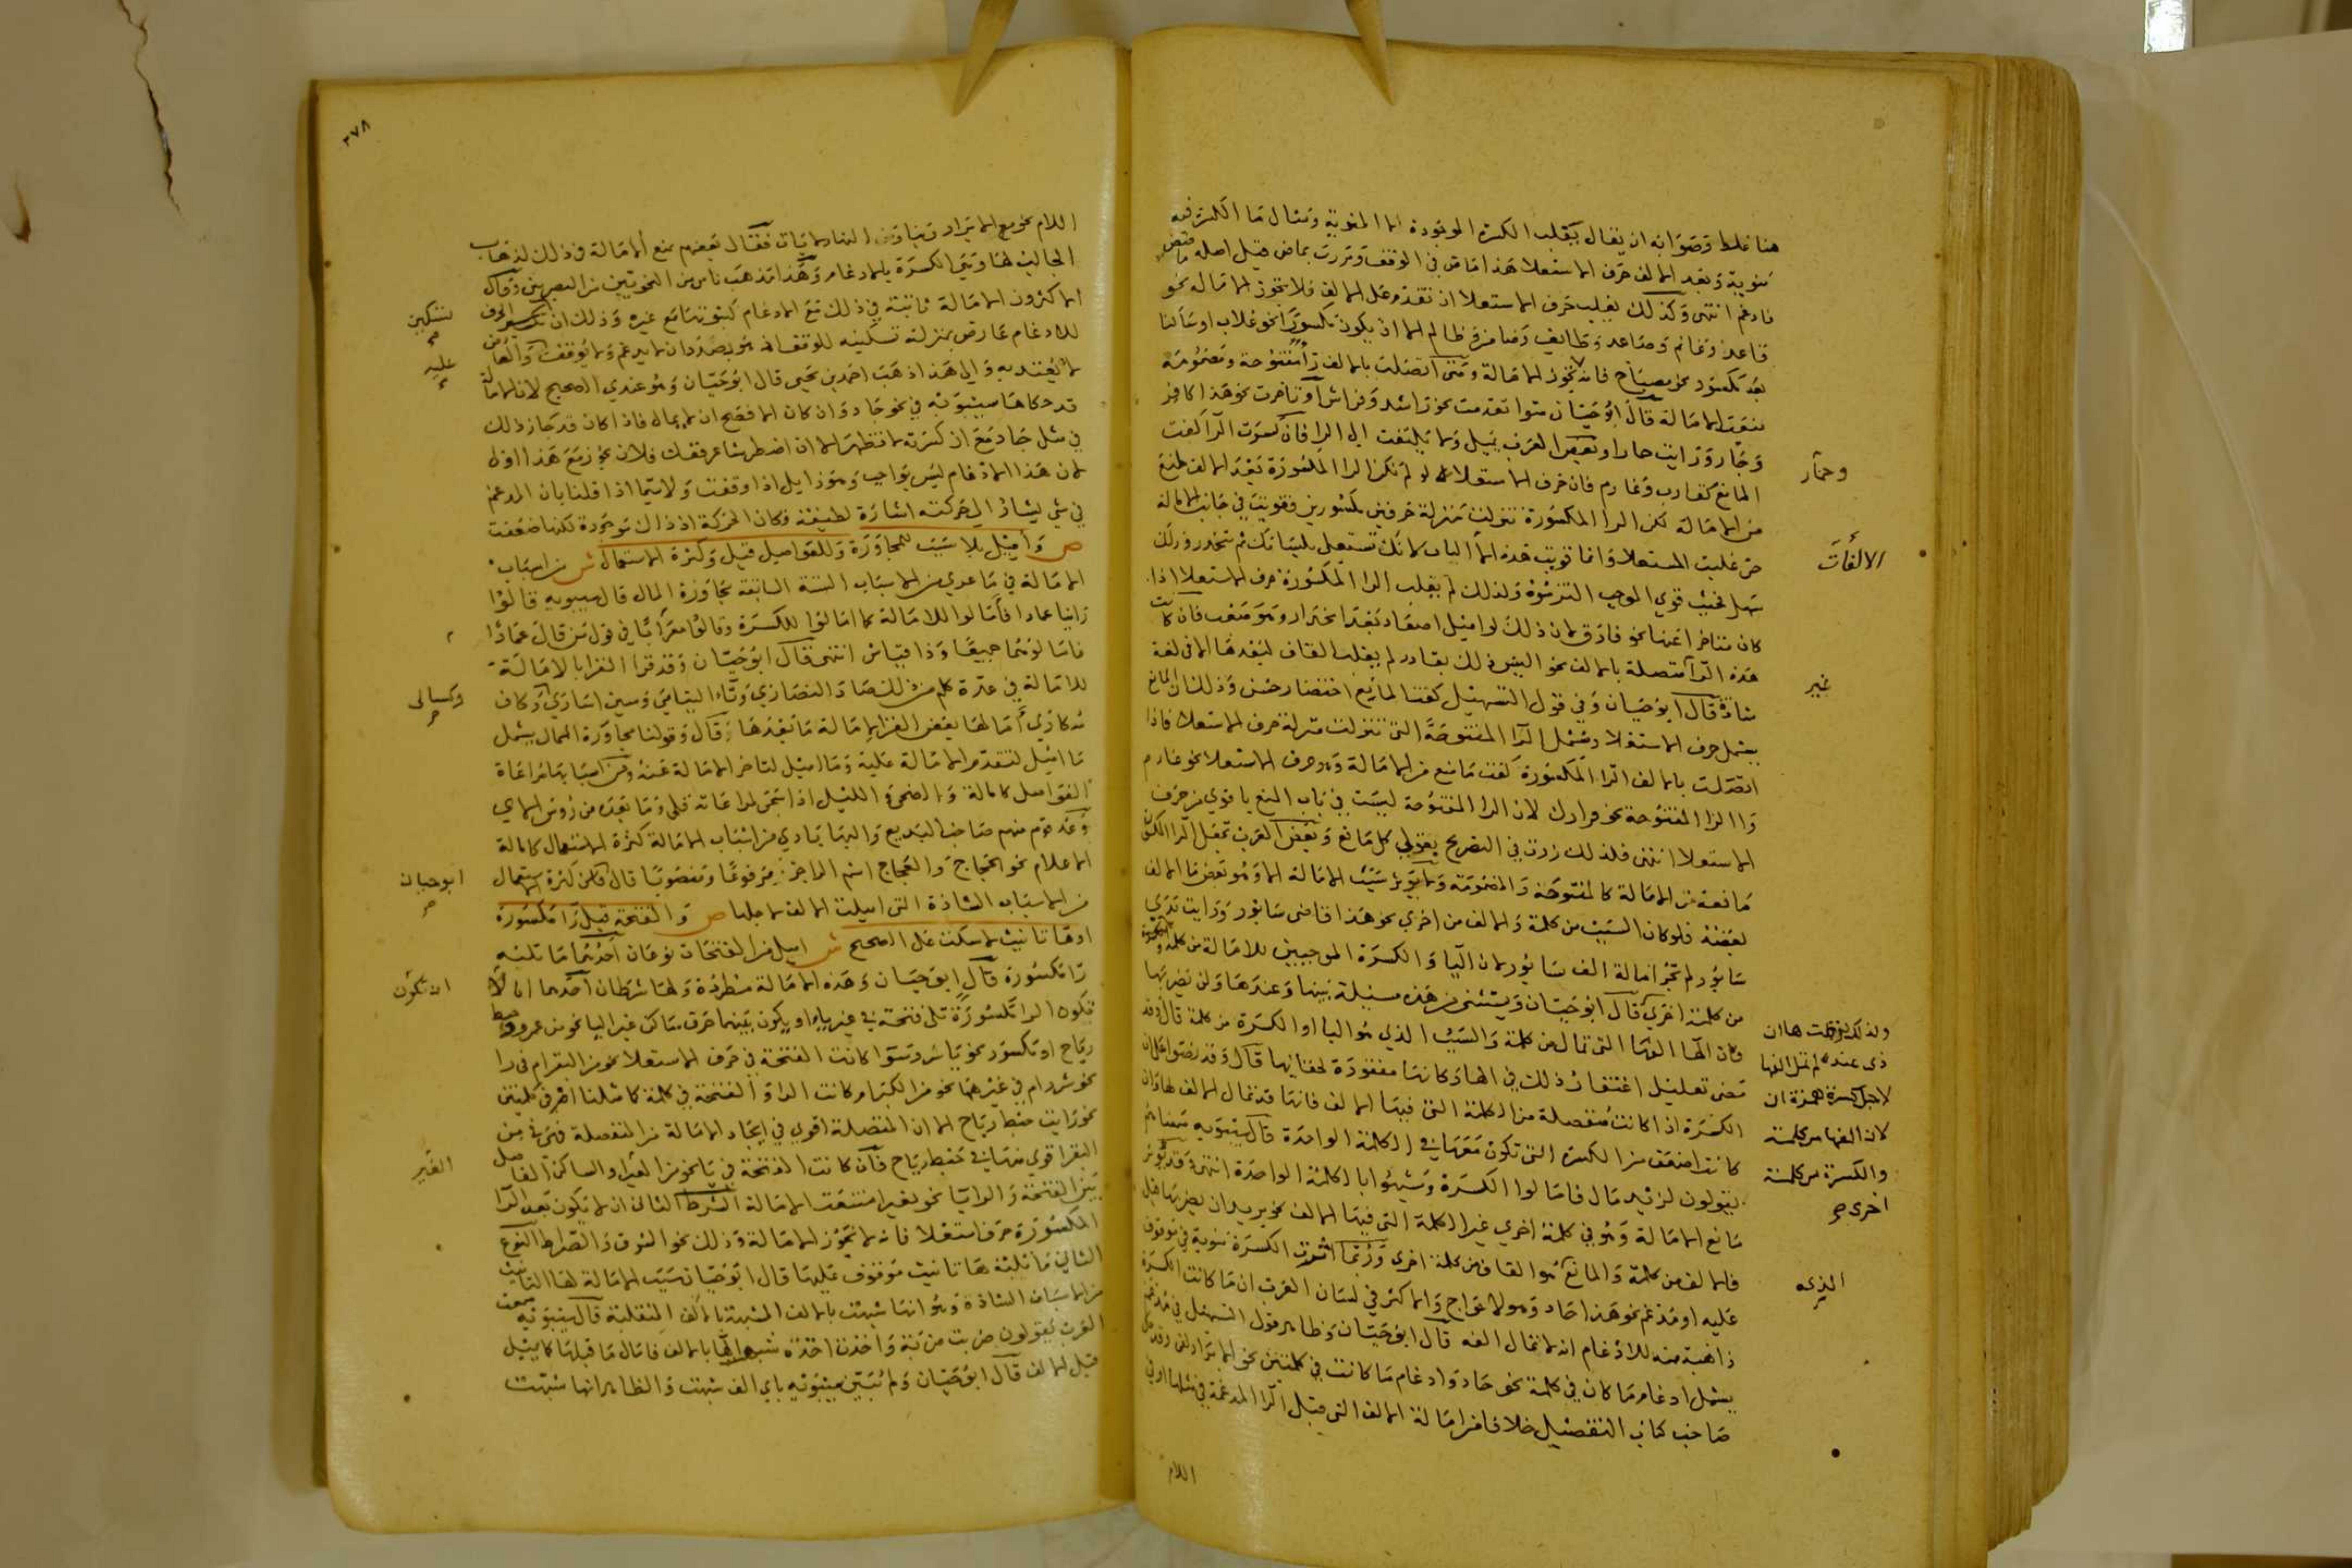 هنا غلط وصوابه ان يقال يقلب الكسرة الموجودة اما المنوية ومثال ما الكسرة فيه
منوية وبعد الالف حرف الاستعلا هذا ماض في الوقف ومررت بماض قبل اصله ماضض
فادغم انتهى وكذلك يغلب حرف الاستعلا ان تقدم على الالف فلا تجوز الامالة نحو
قاعد وغانم وصاعد وطايف وضامن وظالم الا ان يكون مكسورا نحو غلاب او ساكنا
بعد مكسور نحو مصباح فانه تجوز الامالة ومتى اتصلت بالالف را مفتوحة ومضمومة
منعت الامالة قال ابو حيان سوا تقدمت نحو راشد وفراش او تاخرت نحو هذا كافر
وحمار
وجار ورايت حمارا وبعض العرب يميل ولا يلتفت الى الرا فان كسرت الرا كفت
المانع كقارب وغارم فان حرف الاستعلا لو لم تكن الرا المكسورة بعد الالف لمنع
من الامالة لكن الرا المكسورة تنزلت منزلة حرفين مكسورين فقويت في جانب الامالة
الالفات
حتى غلبت المستعلا وانما قويت هذه الباب لانك تستعلي بلسانك ثم تنحدر وذلك
سهل فحيث قوي الموجب التزموه ولذلك لم يغلب الرا المكسورة حرف الاستعلا اذا
كان متاخرا عنها نحو فارق لان ذلك لو اميل اصعاد بعد انحدار وهو صعب فان كانت
هذه الرا متصلة بالالف نحو الیس ذلك بقادر لم يغلب القاف لبعدها الا في لغة
غير
شاذة قال ابو حيان وفي قول التسهيل كفتا المانع اختصار حسن وذلك ان المانع
يشمل حرف الاستعلا ويشمل الرا المفتوحة التي تنزلت منزلة حرف الاستعلا فاذا
اتصلت بالالف الرا المكسورة كفت ما منع من الامالة وهو حرف الاستعلا نحو غارم
والرا المفتوحة نحو قرارك لان الرا المفتوحة ليست في باب المنع باقوى من حرف
الاستعلا انتهى فلذلك زدت في التصريح بقولي كل مانع وبعض العرب تجعل الرا المكسورة
مانعة من الامالة كالمفتوحة والمضمومة ولا يوثر سبب الامالة الا وهو بعض ما الالف
بعضه فلو كان السبب من كلمة والالف من اخرى نحو هذا قاضي سابور ورايت يدي
سابور لم تجز امالة الف سابور لان اليا والكسرة الموجبين للامالة من كلمة
من كلمة اخرى قال ابو حيان ويستثنى من هذه مسئلة بينها وعندها ولن يضربها
ولذلك
ذي عندها لم تمل الفها
لاجل كسرة همزة ان
لان الفها من كلمة
والكسرة من كلمة
اخرى
فان الها الفها التي تمال من كلمة والسبب الذي هو اليا او الكسرة من كلمة قال وقد
مضى تعليل اغتفار ذلك في الها وكانها مفقودة لخفائها قال وقد نصوا على ان
الكسرة اذا كانت منفصلة من الكلمة التي فيها الالف فانها قد تمال الالف لها وان
كانت اضعف من الكسرة التي تكون معها في الكلمة الواحدة قال سيبويه سمعناهم
يقولون لزيد مال فامالوا الكسرة وشبهوا بالكلمة الواحدة انتهى وقد يوثر
مانع الامالة وهو في كلمة اخرى غير الكلمة التي فيها الالف نحو يريد ان يضربها قبل
الذي
فالالف من كلمة والمانع هو القاف من كلمة اخرى وربما اثرت الكسرة منوية في موقوف
عليه او مدغم نحو هذا حاد وهولا عواج والاكثر في لسان العرب ان ما كانت الكسرة
ذاهبة منه للادغام انه لا تمال الفه قال ابو حيان وظاهر قول التسهيل في مدغم
يشمل ادغام ما كان في كلمة نحو حاد وادغام ما كانت في كلمتين نحو الابرار لفي
صاحب كتاب التفصيل خلافا في امالة الالف التي قبل الرا المدغمة في مثلها او في
اللام
٣٧٨
اللام نحو مع الابرار ربنا فقال بعضهم بمنع الامالة في ذلك لذهاب
الجالب لها وهي الكسرة بالادغام وهذا مذهب ناس من النحويين من البصريين وقال
الاكثرون الامالة ثابتة في ذلك مع الادغام كثبوتها مع غيره وذلك ان الحرف
لتسكين
للادغام عارض بمنزلة تسكينه للوقف اذ هو بصدد ان لا يدغم ولا يوقف والعارض
عليه
لا يعتد به والى هذا ذهب احمد بن يحيى قال ابو حيان وهو عندي الصحيح لان الامالة
قد حكاها سيبويه في نحو جاد وان كان الافصح ان لا يمال فاذا كان قد جاز ذلك
في مثل جاد مع ان كسرته لا تظهر الا ان اضطر شاعر ففك فلان يجوز مع هذا اولى
لان هذا الادغام ليس بواجب وهو زايل اذا وقفت ولا سيما اذا قلنا بان المدغم
في شي يشار الى حركته اشارة لطيفة فكان الحركة اذ ذاك موجودة لكنها ضعفت
ص واميل بلا سبب لمجاورة وللفواصل قيل وكثرة الاستعمال ش من اسباب
الامالة في ما عدي من الاسباب الستة السابقة مجاورة الممال قال سيبويه قالوا
راينا عمادا فامالوا للامالة كما امالوا للكسرة وقالوا معزانا في قول من قال عمادا
فامالوهما جميعا وذا قياس انتهى قال ابو حيان وقد قرا القرا بالامالة
للامالة في عدة كلم من ذلك صاد النصارى وتاء اليتامى وسين اسارى وكاف
وكسالى
سكارى امالها بعض القرا لامالة ما بعدها قال وقولنا مجاورة الممال يشمل
ما اميل لتقدم الامالة عليه وما اميل لتاخر الامالة عنه ومن اسبابها مراعاة
الفواصل كامالة والضحى والليل اذا سجى لمراعاة قلى وما بعده من روس الاي
وعد قوم منهم صاحب البديع والبهاباذي من اسباب الامالة كثرة الاستعمال كامالة
الاعلام نحو الحجاج والعجاج اسم الراجز مرفوعا ومنصوبا قال فكل كثرة الاستعمال
ابو حيان
من الاسباب الشاذة التي اميلت الالف لاجلها ص والفتحة قبل را مكسورة
او ها تانيث لا سكت على الصحيح ش اميل من الفتحات نوعان احدهما ما تليه
را مكسورة قال ابو حيان وهذه الامالة مطردة ولها شرطان احدهما ان لا
ان تكون
تكون الرا مكسورة تلي فتحة في غير ياء او يكون بينهما حرف ساكن غير اليا نحو من عمرو وخبط
رياح او مكسور نحو ياسر وسوا كانت الفتحة في حرف الاستعلا نحو من البقر ام في را
نحو شرر ام في غيرهما نحو من الكبر ام كانت الرا والفتحة في كلمة كما مثلنا ام في كلمتين
نحو رايت خبط رياح الا ان المتصلة اقوى في ايجاد الامالة من المنفصلة فهي في من
البقر اقوى منها في خبط رياح فان كانت الفتحة في يا نحو من الغير او الساكن الفاصل
الغير
بين الفتحة والرا يا نحو بغير امتنعت الامالة الشرط الثاني ان لا يكون بعد الرا
المكسورة حرف استعلا فانه لا تجوز الامالة وذلك نحو الشرق والصراط النوع
الثاني ما تليه ها تانيث موقوف عليها قال ابو حيان سبب الامالة لها التانيث
من الاسباب الشاذة وهو انها شبهت بالالف المشبهة بالالف المنقلبة قال سيبويه سمعت
العرب يقولون ضربت ضربة واخذت اخذة شبه الها بالالف فامال ما قبلها كما يميل
قبل الالف قال ابو حيان ولم يبين سيبويه باي الف شبهت والظاهر انها شبهت